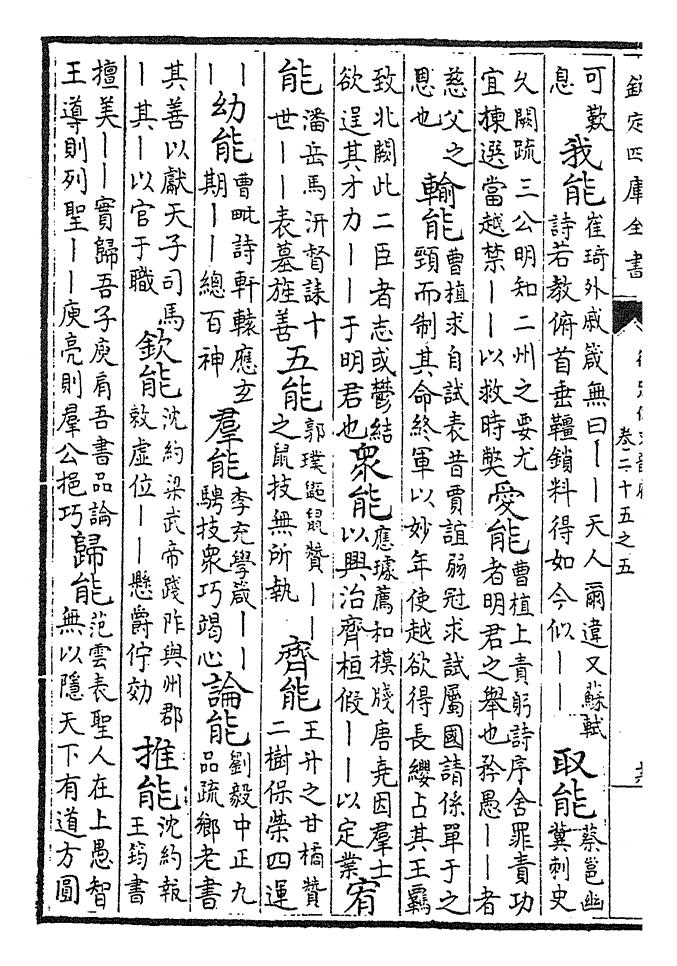 欽定四庫全書
卷二十五之五
可歎息 我能 崔琦外戚箴無曰——天人爾違又蘇軾詩若教俯首垂韁鎖料得如今似—— 取能 蔡邕幽冀刺史
久闕疏三公明知二州之要尤宜揀選當越禁——以救時弊 愛能 曹植上責躬詩序舍罪責功者明君之舉也矜愚——者
慈父之恩也 輸能 曹植求自試表昔賈誼弱冠求試屬國請係單于之頸而制其命終軍以妙年使越欲得長纓占其王羈
致北闕此二臣者志或鬱結欲逞其才力——于明君也 衆能 應璩薦和模牋唐堯因羣士以興治齊桓假——以定業 宥
能 潘岳馬汧督誄十世——表墓旌善 五能 郭璞鼫鼠贊——之鼠技無所執 齊能 王升之甘橘贊二樹保榮四運
—— 幼能 曹毗詩軒轅應玄期——總百神 羣能 李充學箴——騁技衆巧竭心 論能 劉毅中正九品疏鄉老書
其善以獻天子司馬—其—以官于職 欽能 沈約梁武帝踐阼與州郡敕虛位——懸爵佇効 推能 沈約報王筠書
擅美——實歸吾子庾肩吾書品論王導則列聖——庾亮則羣公挹巧 歸能 范雲表聖人在上愚智無以隱天下有道方圓